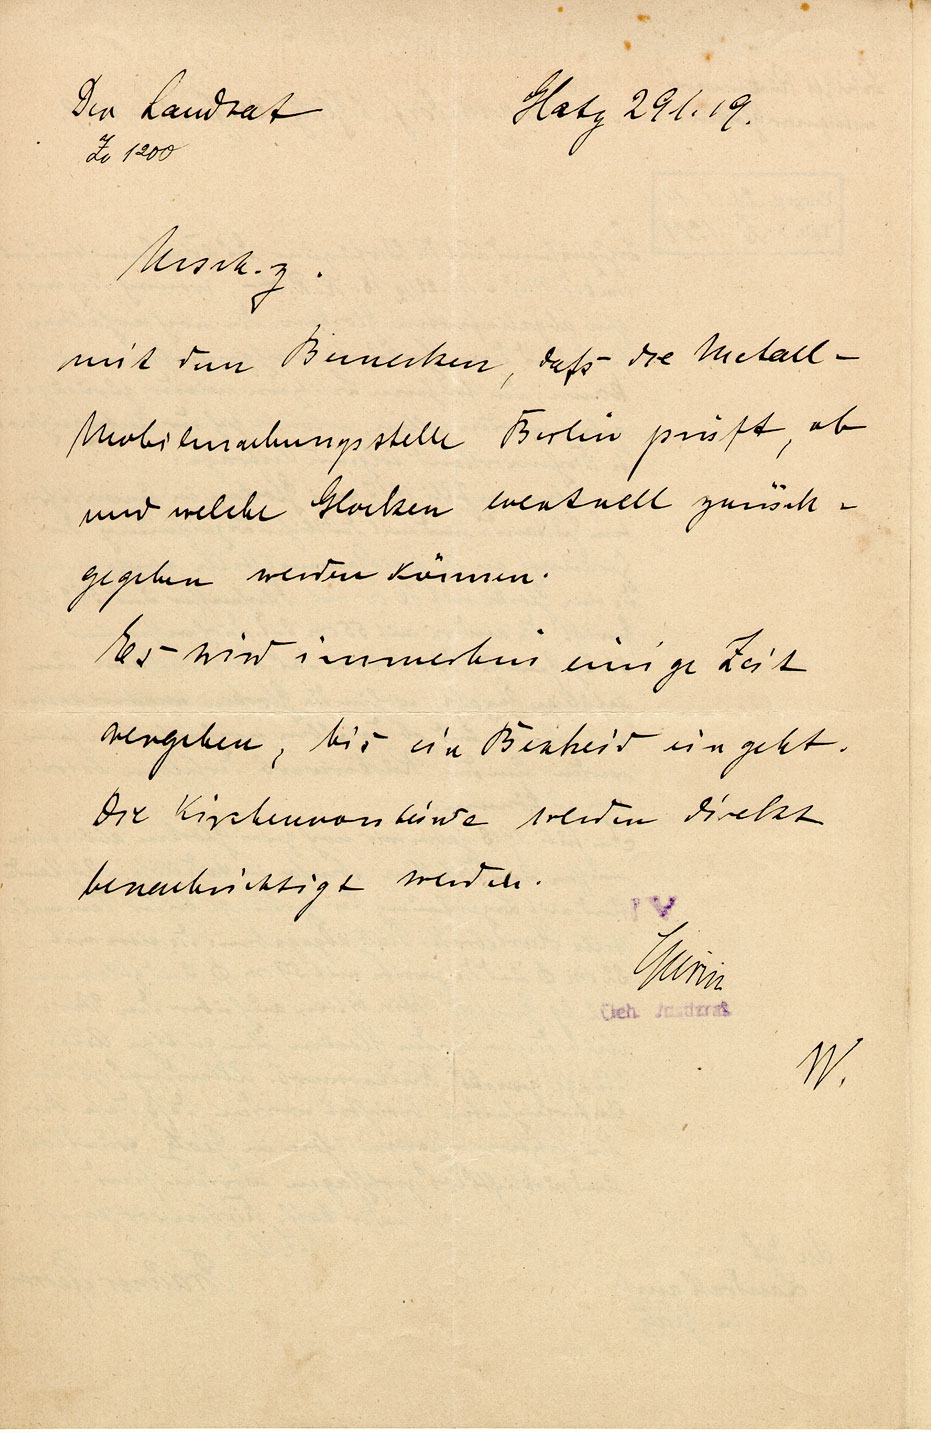 Der Landrat
Glatz 29.1.19.
1200
Urschr.
mit dem Bemerken, daß die Metall-
Mobilmachungsstelle Berlin prüft, ob
und welche Glocken eventuell zurück-
gegeben werden können.
Es wird immerhin einige Zeit
vergehen, bis ein Bescheid eingeht.
Die Kirchenvorstände werden direkt
benachrichtigt werden.
IV
Geh. Justizrat
W.